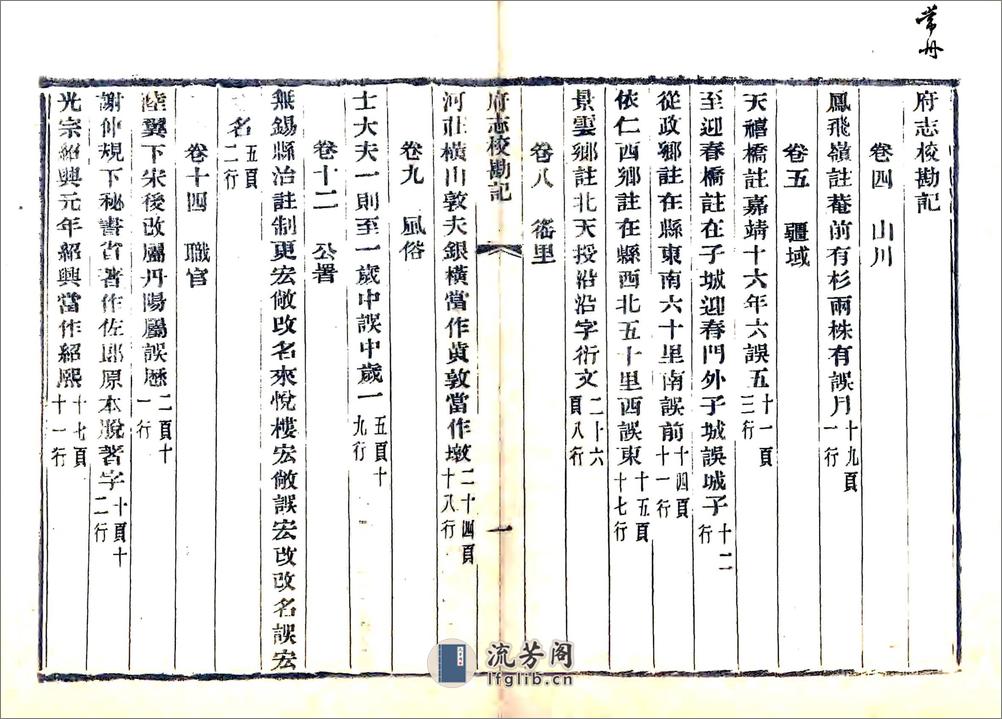 常州
府志校勘記
卷四　山川
鳳飛嶺註菴前有杉兩株有誤月十九頁一行
卷五　疆域
天禧橋註嘉靖十六年六誤五十一頁三行
至迎春橋註在子城迎春門外子城誤城子十二行
從政鄉註在縣東南六十里南誤前十四頁十一行
依仁西鄉註在縣西北五十里西誤東十五頁十七行
景雲鄉註北天授沿沿字衍文二十六頁八行
卷八
府志校勘記　一
河莊橫山敦夫銀橫當作黃敦當作墩二十四頁十八行
卷九　風俗
士大夫一則至一歲中誤中歲一五頁十九行
卷十二　公署
無錫縣治註制更宏敞改名來悅樓宏敞誤宏改改名誤宏
名五頁二行
卷十四　職官
陸翼下宋後改屬丹陽屬誤歷二頁十一行
謝仲規下秘書省著作佐郎原本脫著字十頁十二行
光宗紹興元年紹興當作紹熙十七頁十一行
流芳阁
lfglib.cn